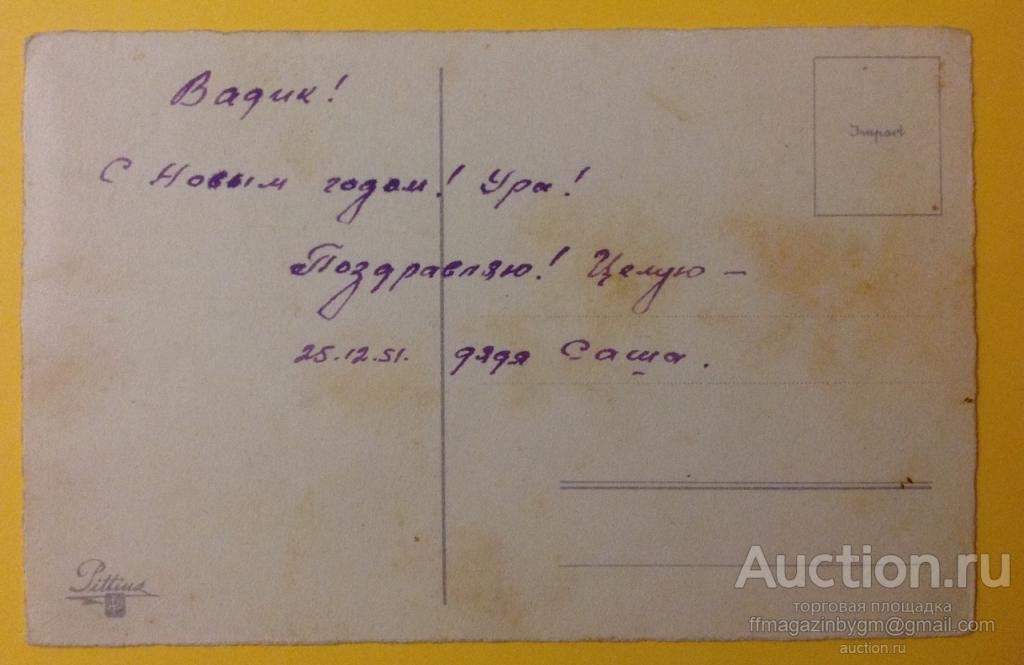 Вадик!
Import
С Новым годом! Ура!
Поздравляю! Целую —
25.12.51. дядя Саша.
Pittius
Auction.ru
торговая площадка
ffmagazinbygm@gmail.com
auction.ru